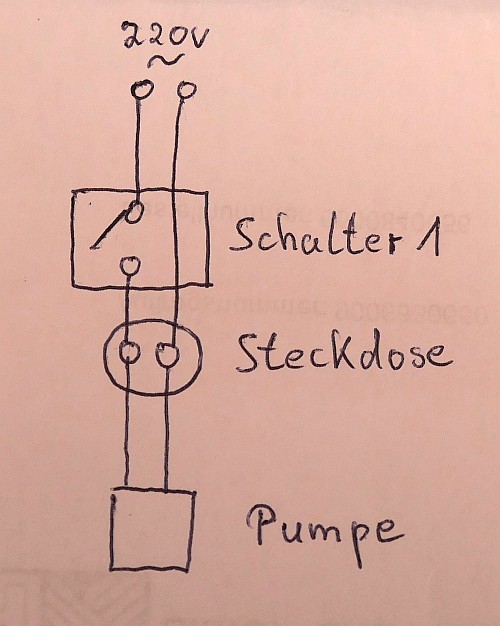 220V
~
Schalter 1
Steckdose
Pumpe